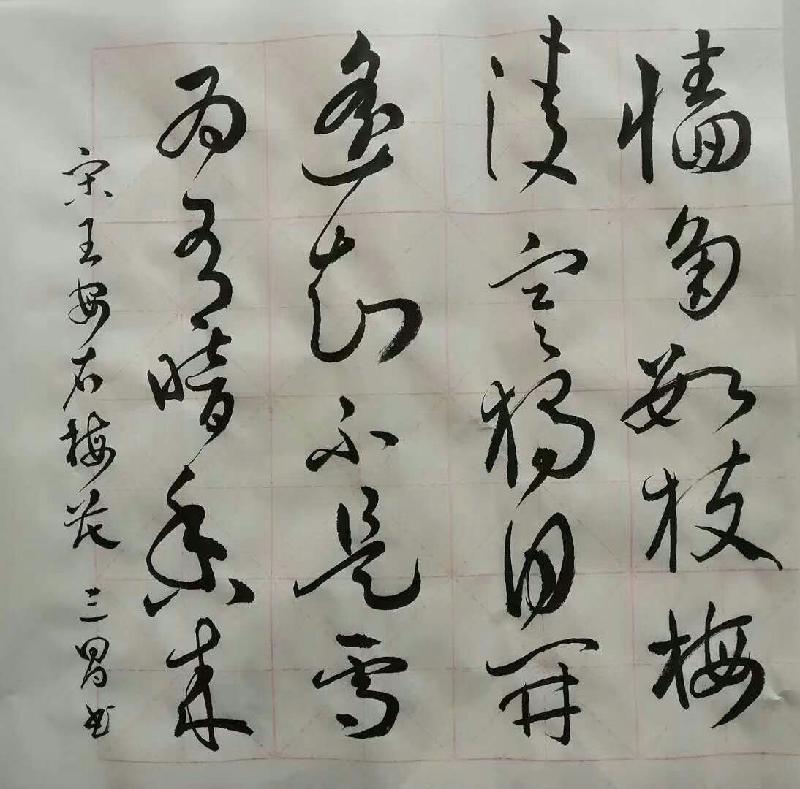 墙角数枝梅
凌寒独自开
遥知不是雪
为有暗香来
宋王安石梅花 三冒书